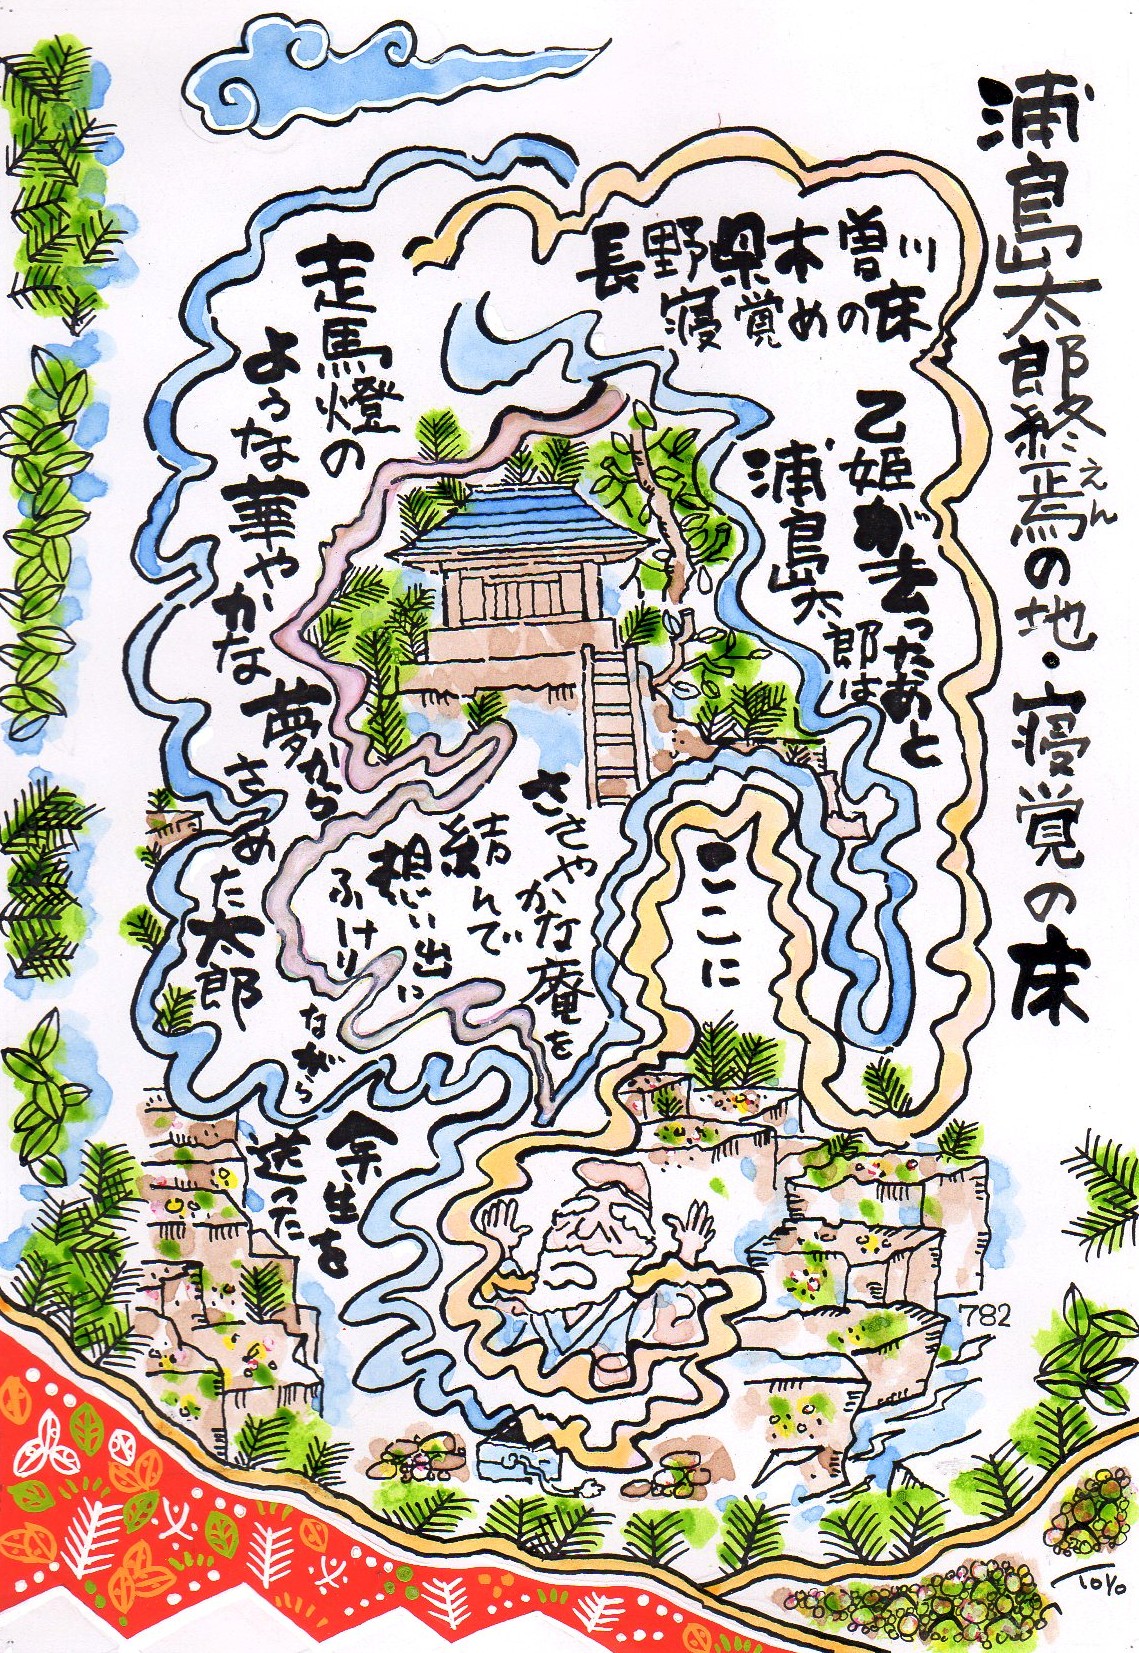 浦島太郎終焉の地・寝覚の床
えん
長野県木曽川
寝覚めの床
乙姫が去ったあと
浦島太郎は
ここに
ささやかな庵を
結んで
想い出に
ふけり
ながら
走馬燈の
ような華やかな夢から
さめた太郎
余生を
送った
782
TOYO